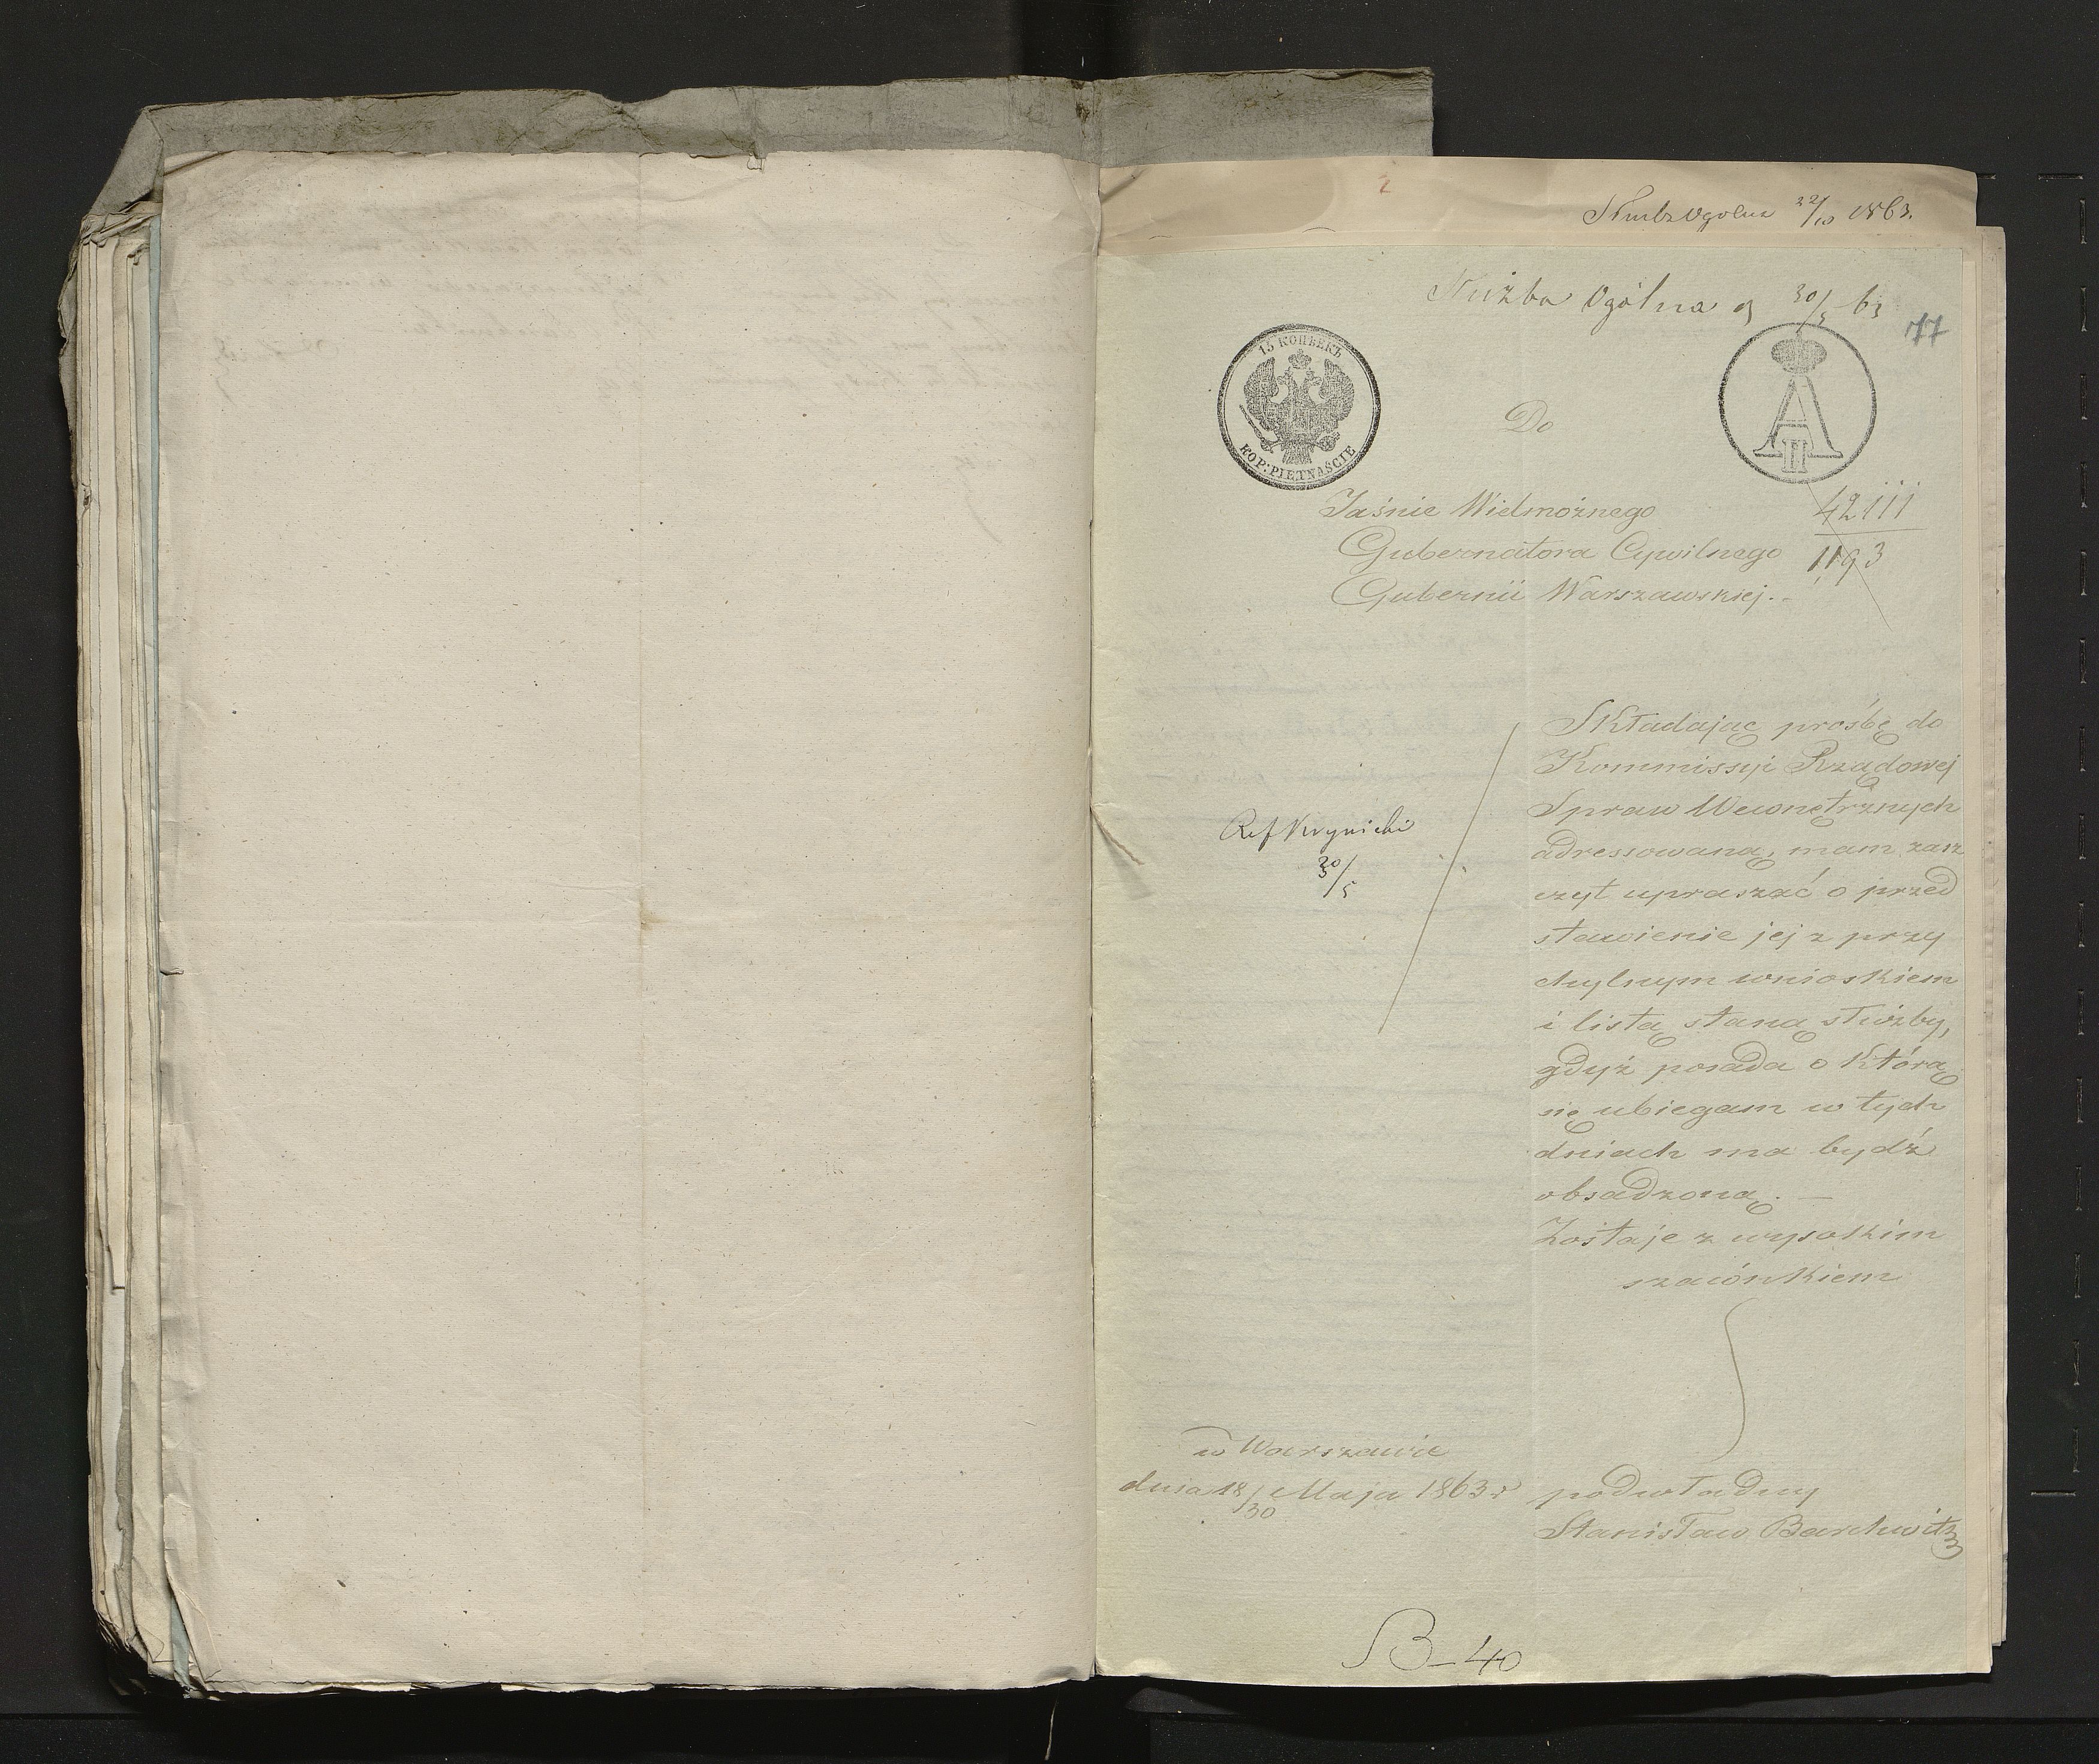 Służb Ogólna 22/10 1863.
Służba Ogólna 30/5 63
77
15 КОПѢЕКЪ
KOP: PIĘTNAŚCIE
A II
Do
Jaśnie Wielmożnego
Gubernatora Cywilnego
Gubernii Warszawskiej.-
42111
1193
Składając prośbę do
Kommissyi Rządowej
Spraw Wewnętrznych
adressowaną, mam zasz
czyt upraszać o przed
stawienie jej z przy
chylnym wnioskiem
i listą staną służby,
gdyż posada o którą
się ubiegam w tych
dniach ma bydź
obsadzoną. —
Zostaję z wysokim
szacónkiem
Ref Krynicki
30/5
w Warszawie
dnia 18/30 Maja 1863 r
podwładny
Stanisław Barchwitz
B-40